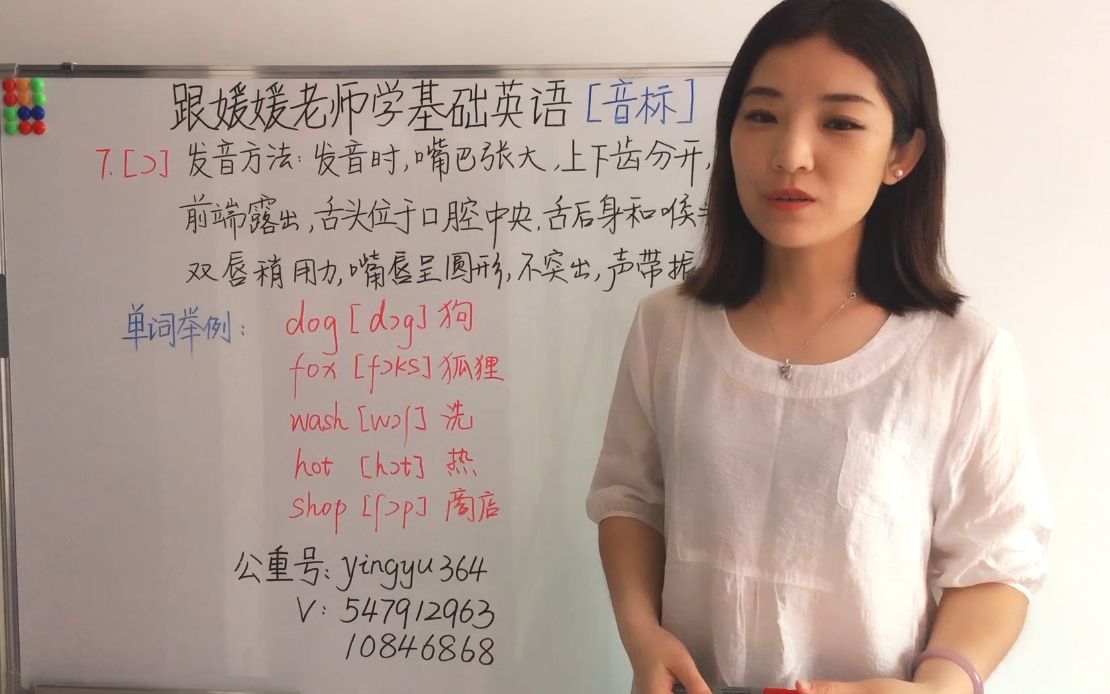 跟媛媛老师学基础英语[音标]
7.[ɔ] 发音方法:发音时,嘴巴张大,上下齿分开,
前端露出,舌头位于口腔中央,舌后身和喉
双唇稍用力,嘴唇呈圆形,不突出,声带振
单词举例: dog [dɔg] 狗
fox [fɔks] 狐狸
wash [wɔʃ] 洗
hot [hɔt] 热
shop [ʃɔp] 商店
公重号:yingyu364
V:547912963
10846868